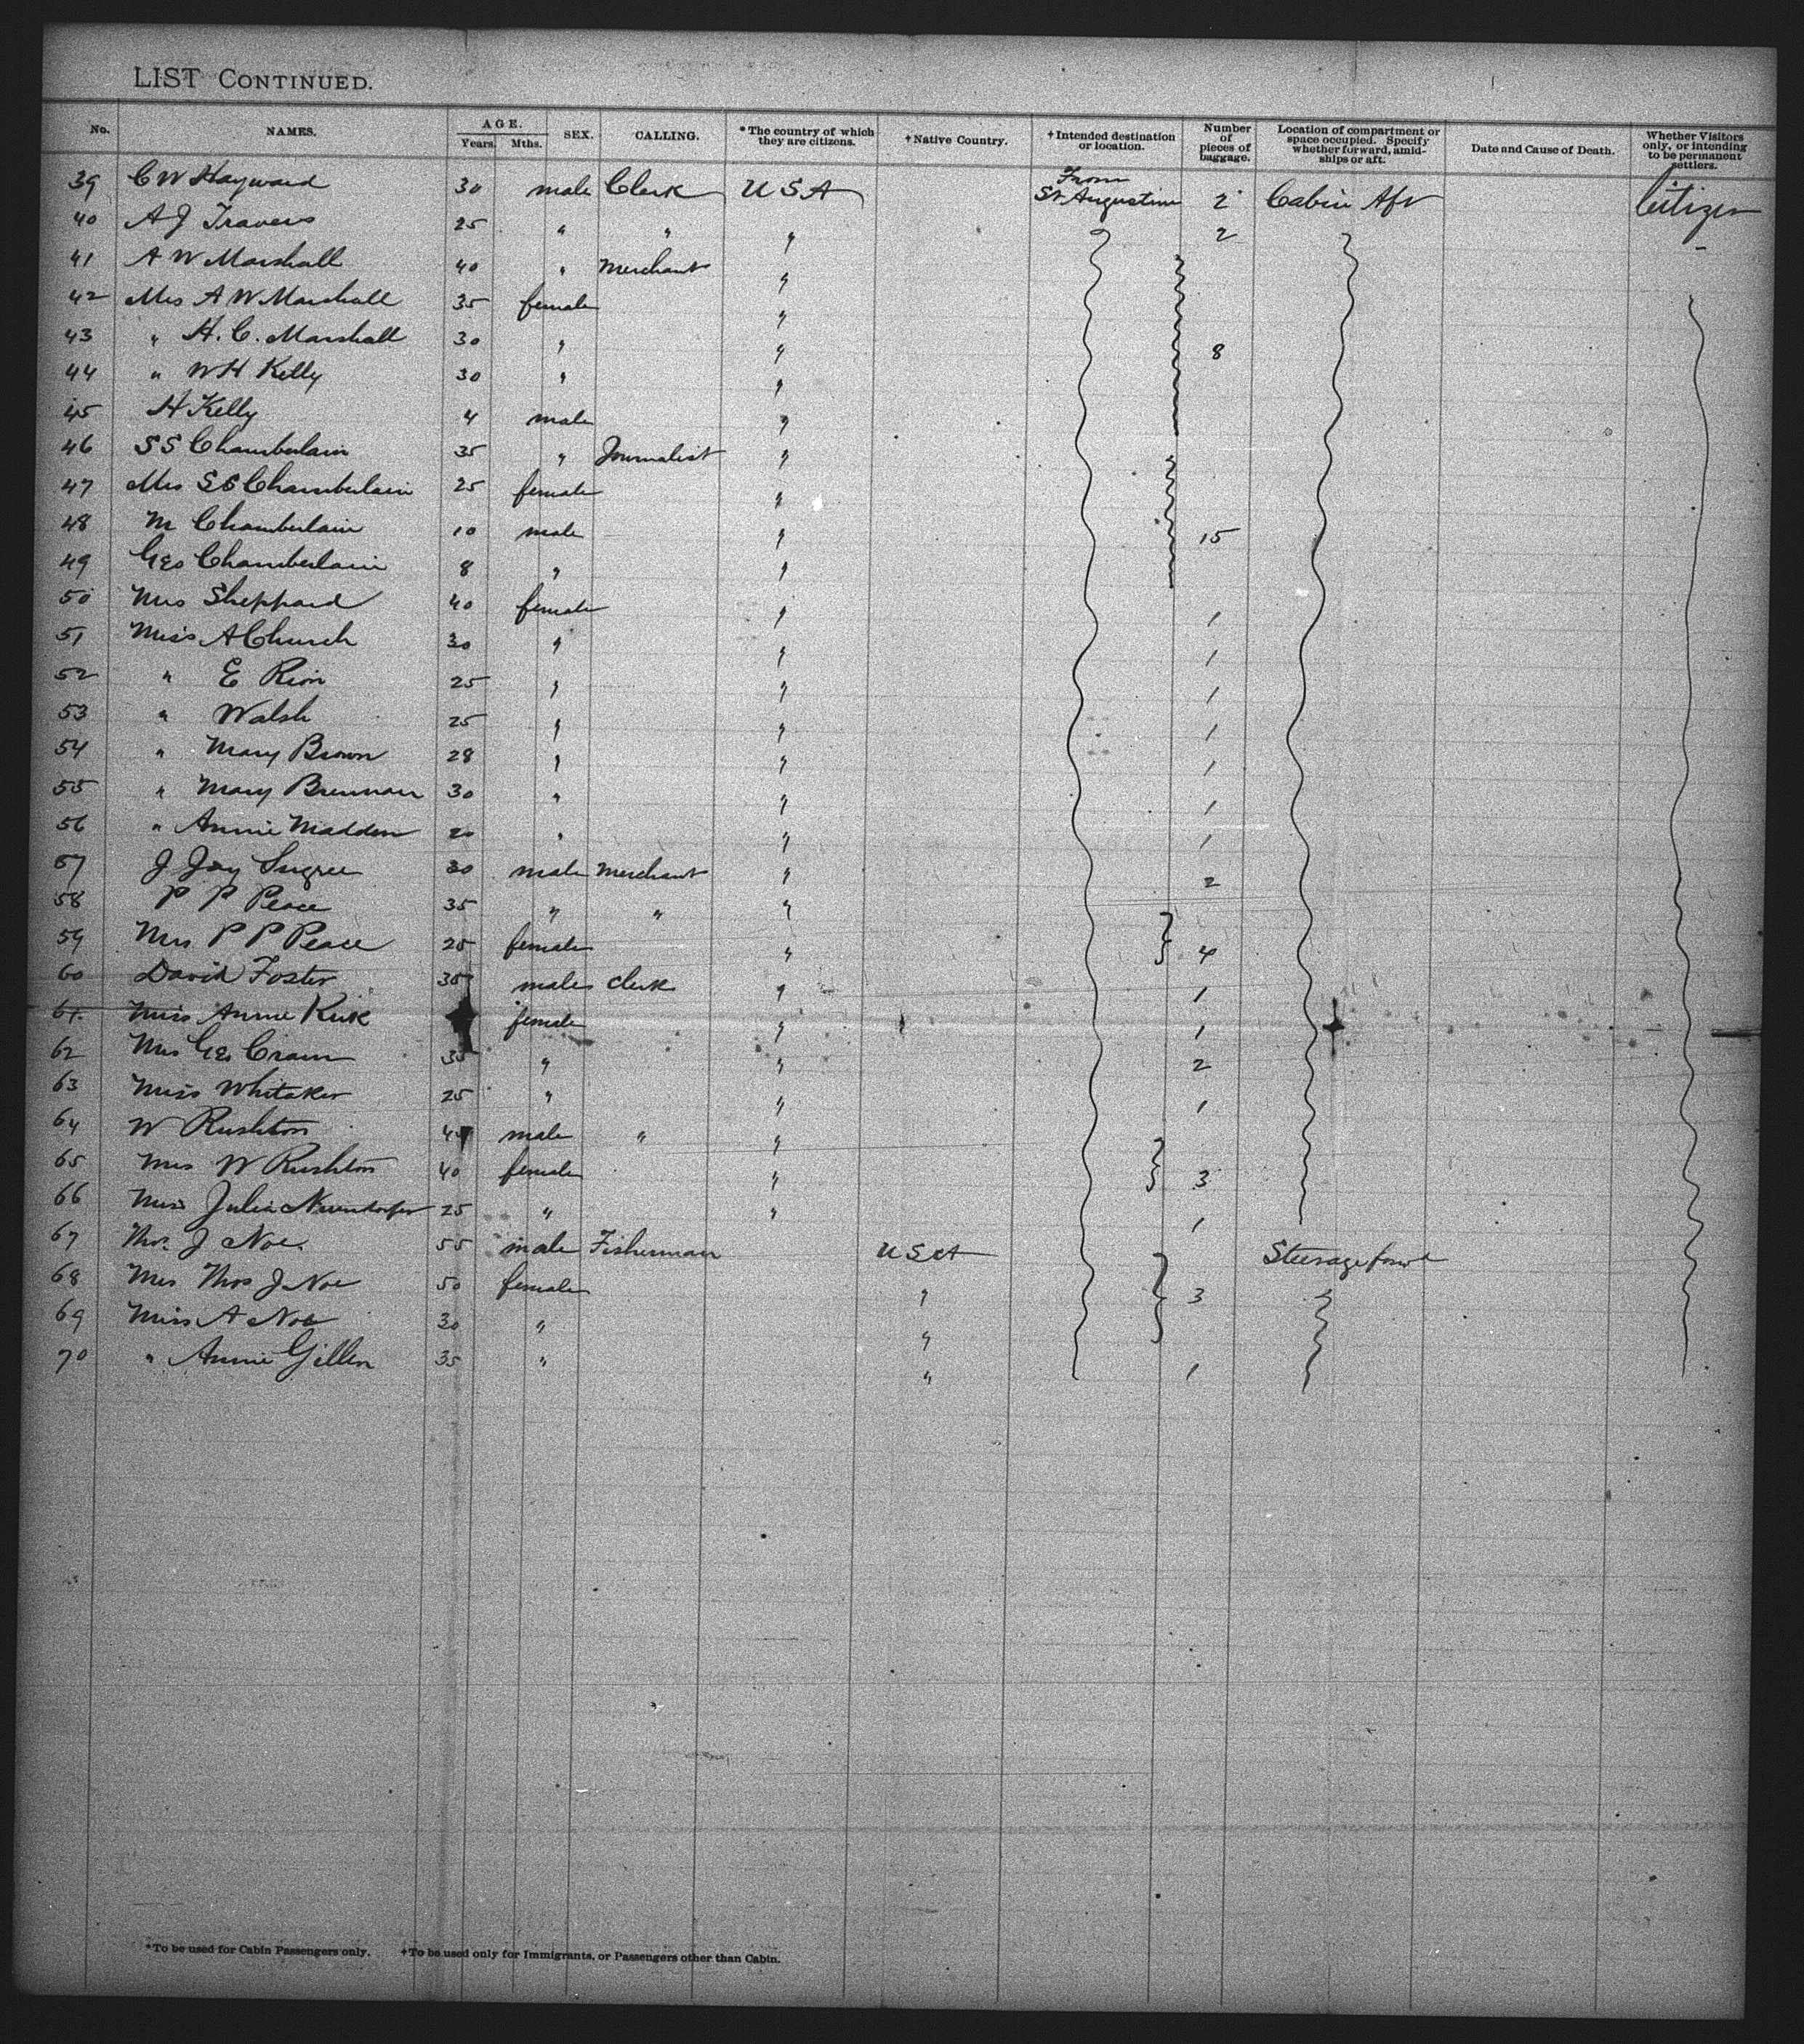 LIST CONTINUED.
No. NAMES. AGE. Years. Mths. SEX. CALLING. *The country of which they are citizens. †Native Country. †Intended destination or location. Number of pieces of baggage. Location of compartment or space occupied. Specify whether forward, amidships or aft. Date and Cause of Death. Whether Visitors only, or intending to be permanent settlers.
39 C W Hayward 30 male Clerk U S A From St Augustine 2 Cabin Aft Citizen
40 A J Travers 25 " " " 2
41 A W Marshall 40 " Merchant "
42 Mrs A W Marshall 35 female "
43 " H. C. Marshall 30 " " 8
44 " W H Kelly 30 " "
45 H Kelly 4 male "
46 S S Chamberlain 35 " Journalist "
47 Mrs S S Chamberlain 25 female "
48 M Chamberlain 10 male " 15
49 Geo Chamberlain 8 " "
50 Mrs Sheppard 40 female " 1
51 Miss A Church 30 " " 1
52 " E Rion 25 " " 1
53 " Walsh 25 " " 1
54 " Mary Brown 28 " " 1
55 " Mary Brennan 30 " " 1
56 " Annie Madden 20 " " 1
57 J Jay 30 male Merchant " 2
58 P P Peace 35 " " "
59 Mrs P P Peace 25 female " 4
60 David Foster 35 male Clerk " 1
61 Miss Annie Kirk female " 1
62 Mrs Geo Cram " " 2
63 Miss Whitaker 25 " " 1
64 W Rushton male " "
65 Mrs W Rushton 40 female " 3
66 Miss Julia 25 " " 1
67 Thos. J Noe. 55 male Fisherman U S A Steerage forwd
68 Mrs Thos J Noe 50 female " 3
69 Miss A Noe 30 " "
70 " Annie Gillen 35 " " 1
*To be used for Cabin Passengers only. †To be used only for Immigrants, or Passengers other than Cabin.